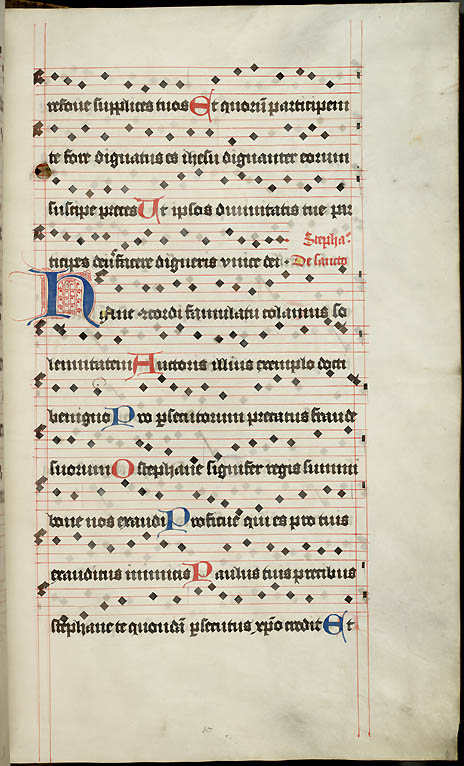 resoue supplices tuos Et quoru participem
te fore dignatus es ihesu dignanter eorum
suscipe preces Ut ipsos diuinitatis tue par
ticipes deus facere digneris vnice dei
Stepha
De sancto
Hanc concordi famulatu colamus so
lemnitatem Auctoris illius exemplo docti
benigno Pro psecutorum precatus fraude
suorum O stephane signifer regis summi
bone nos exaudi Proficue qui es pro tuis
exauditus inimicis Paulus tuis precibus
stephane te quondam psecutus xpo credit Et